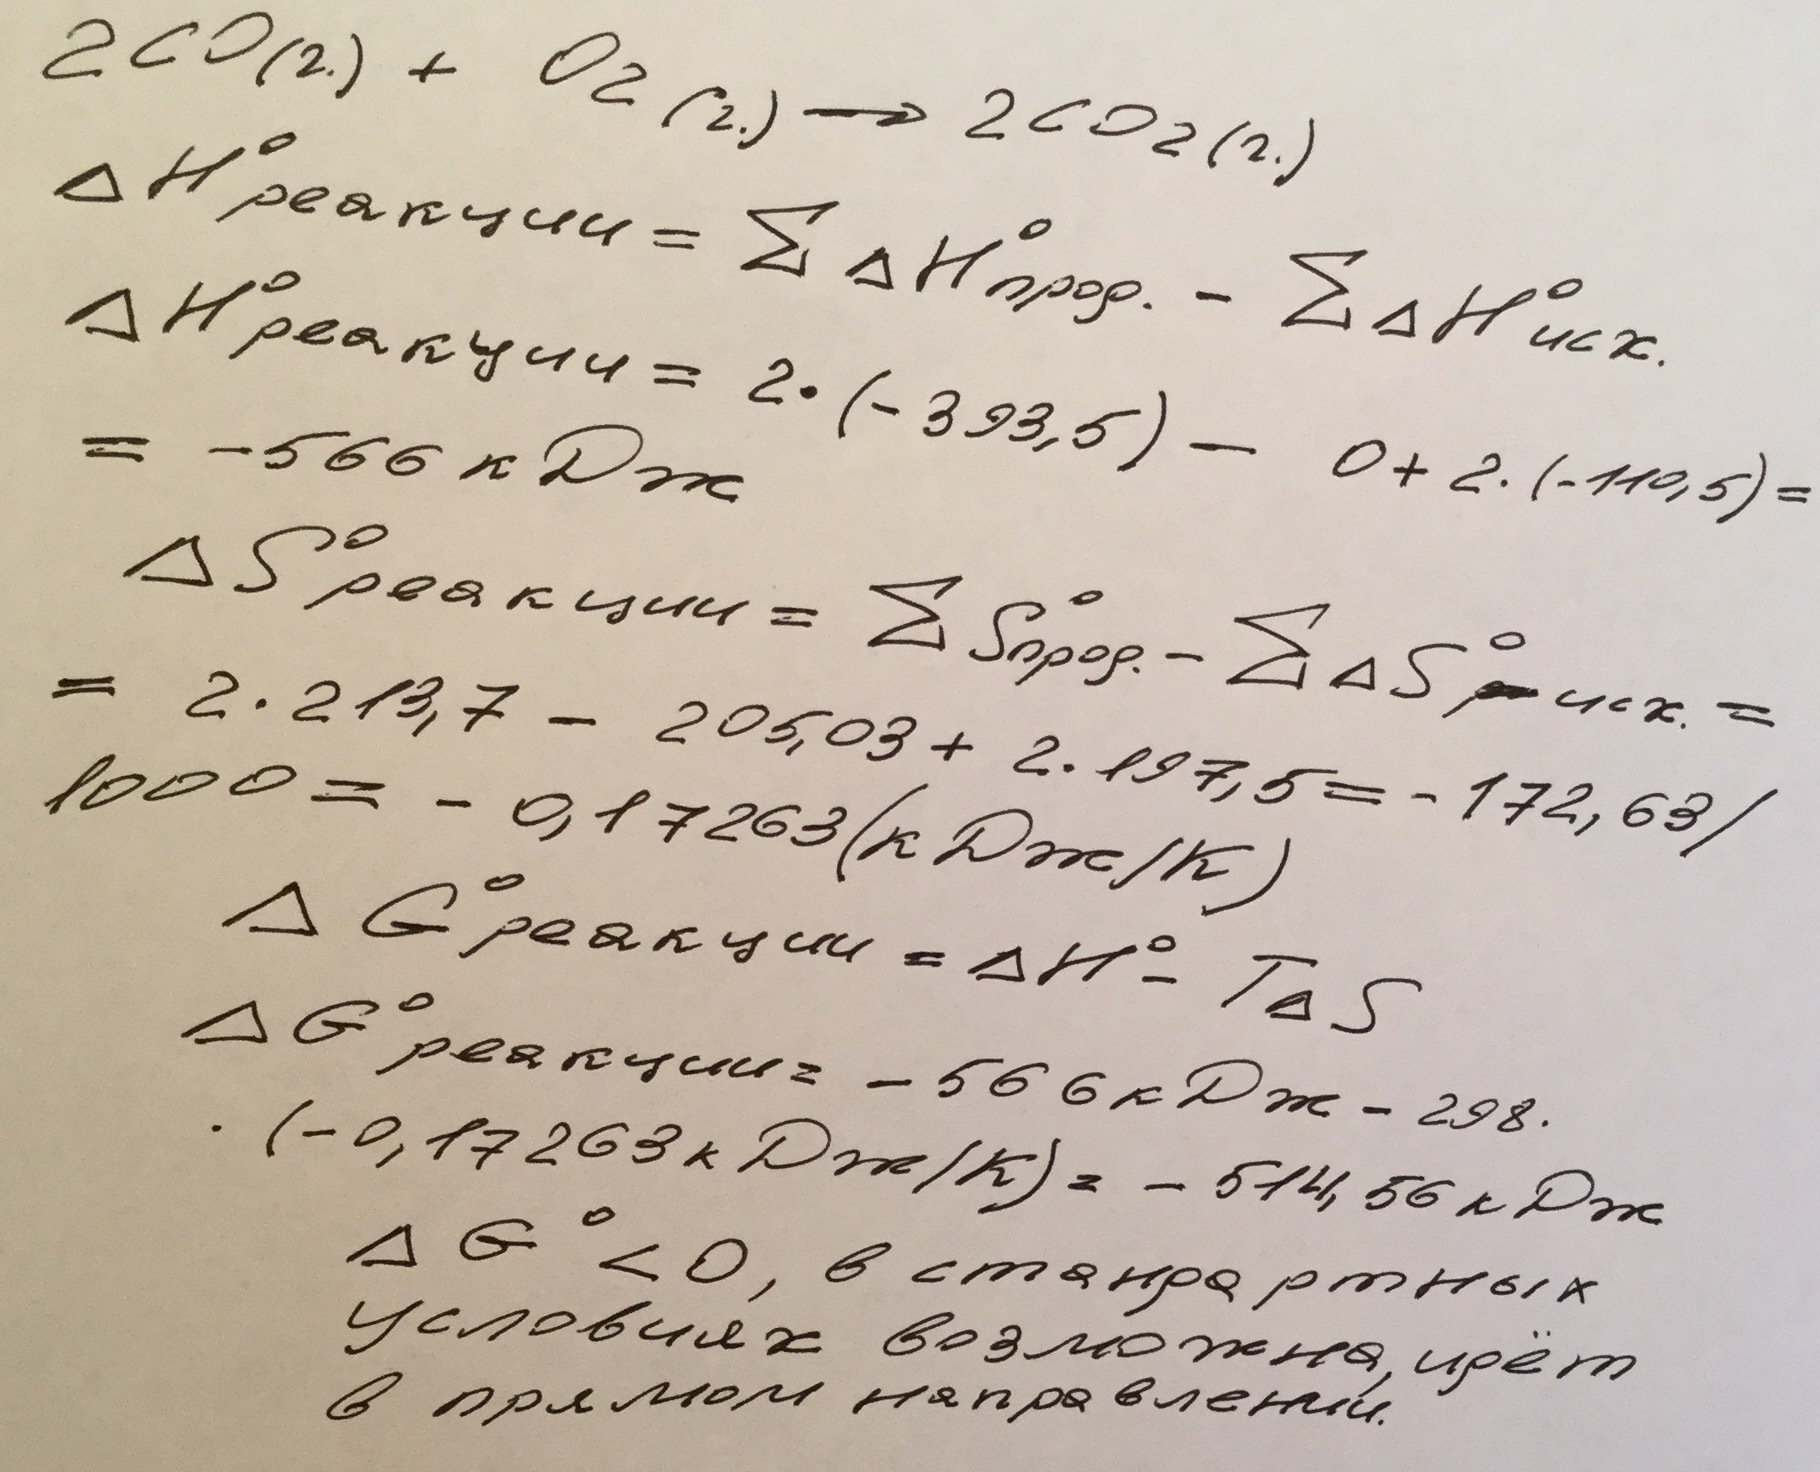 2CO(г.) + O2(г.) → 2CO2(г.)
ΔH°реакции = ΣΔH°прод. - ΣΔH°исх.
ΔH°реакции = 2·(-393,5) - 0+2·(-110,5)=
= -566 кДж
ΔS°реакции = ΣS°прод. - ΣΔS°исх. =
= 2·213,7 - 205,03 + 2·197,5 = -172,63/
1000 = -0,17263(кДж/К)
ΔG°реакции = ΔH° - TΔS
ΔG°реакции = -566 кДж - 298·
·(-0,17263 кДж/К) = -514,56 кДж
ΔG° < 0, в стандартных
условиях возможна, идёт
в прямом направлении.